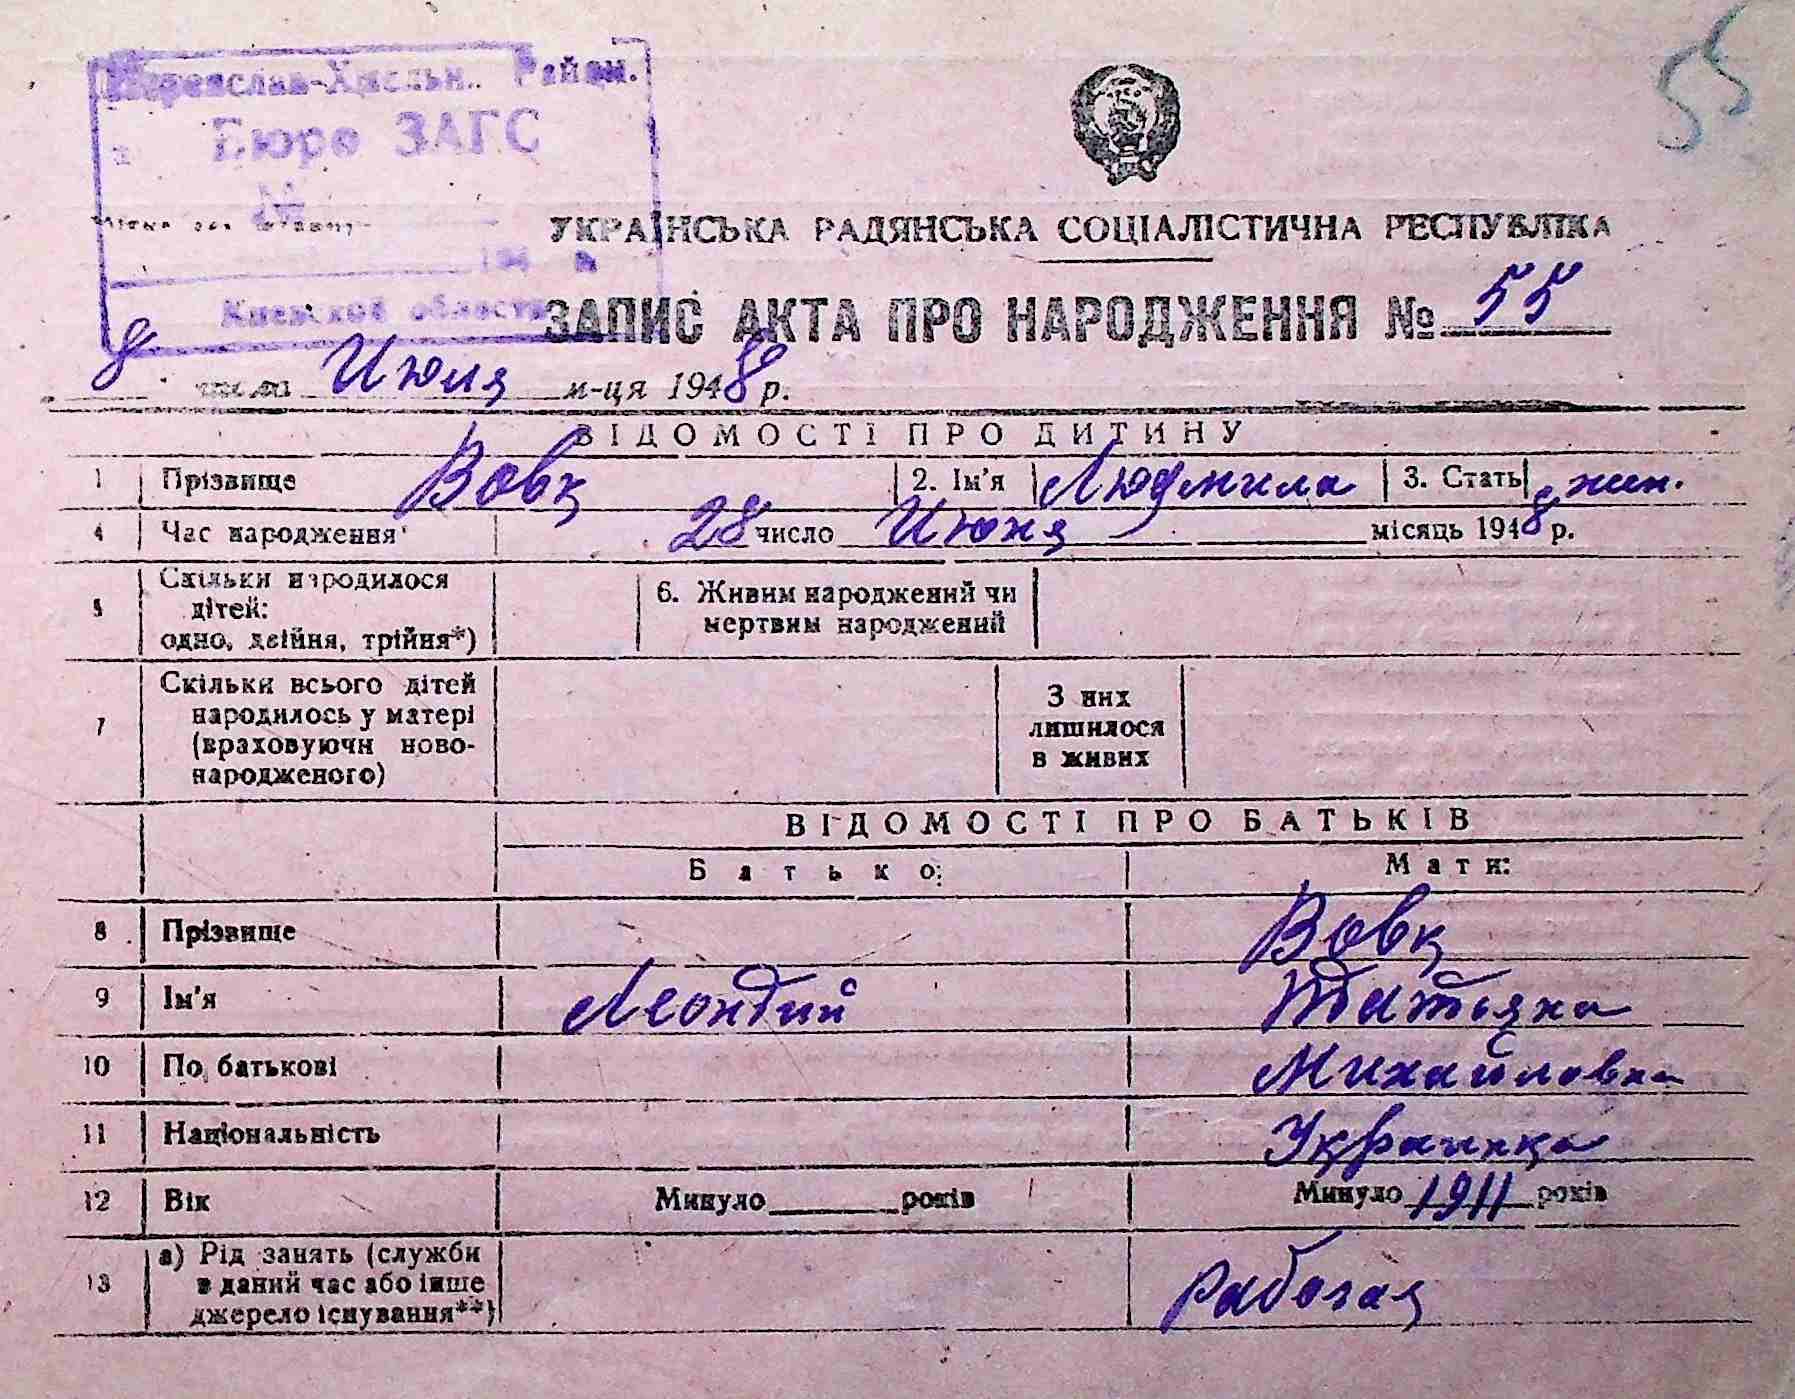 55
Переяслав-Хмельн. Район.
Бюро ЗАГС
№
194
Киевской области
УКРАЇНСЬКА РАДЯНСЬКА СОЦІАЛІСТИЧНА РЕСПУБЛІКА
ЗАПИС АКТА ПРО НАРОДЖЕННЯ № 55
8 числа Июля м-ця 1948 р.
ВІДОМОСТІ ПРО ДИТИНУ
1 Прізвище Вовк 2. Ім'я Людмила 3. Стать жин.
4 Час народження 28 число Июня місяць 1948 р.
5 Скільки народилося
дітей:
одно, двійня, трійня*)
6. Живим народжений чи
мертвим народжений
7 Скільки всього дітей
народилось у матері
(враховуючи ново-
народженого)
З них
лишилося
в живих
ВІДОМОСТІ ПРО БАТЬКІВ
Батько: Мати:
8 Прізвище Вовк
9 Ім'я Леонтий Татьяна
10 По батькові Михайловна
11 Національність Украинка
12 Вік Минуло років Минуло 1911 років
13 а) Рід занять (служби
в даний час або інше
джерело існування**)
Рабочая